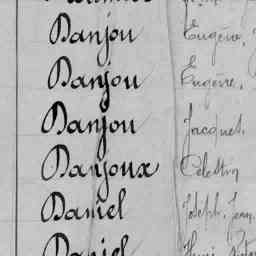 Danjou Eugène,
Danjou Eugène,
Danjou Jacques,
Danjoux Célestin
Daniel Joseph, Jean,
Daniel Henri,